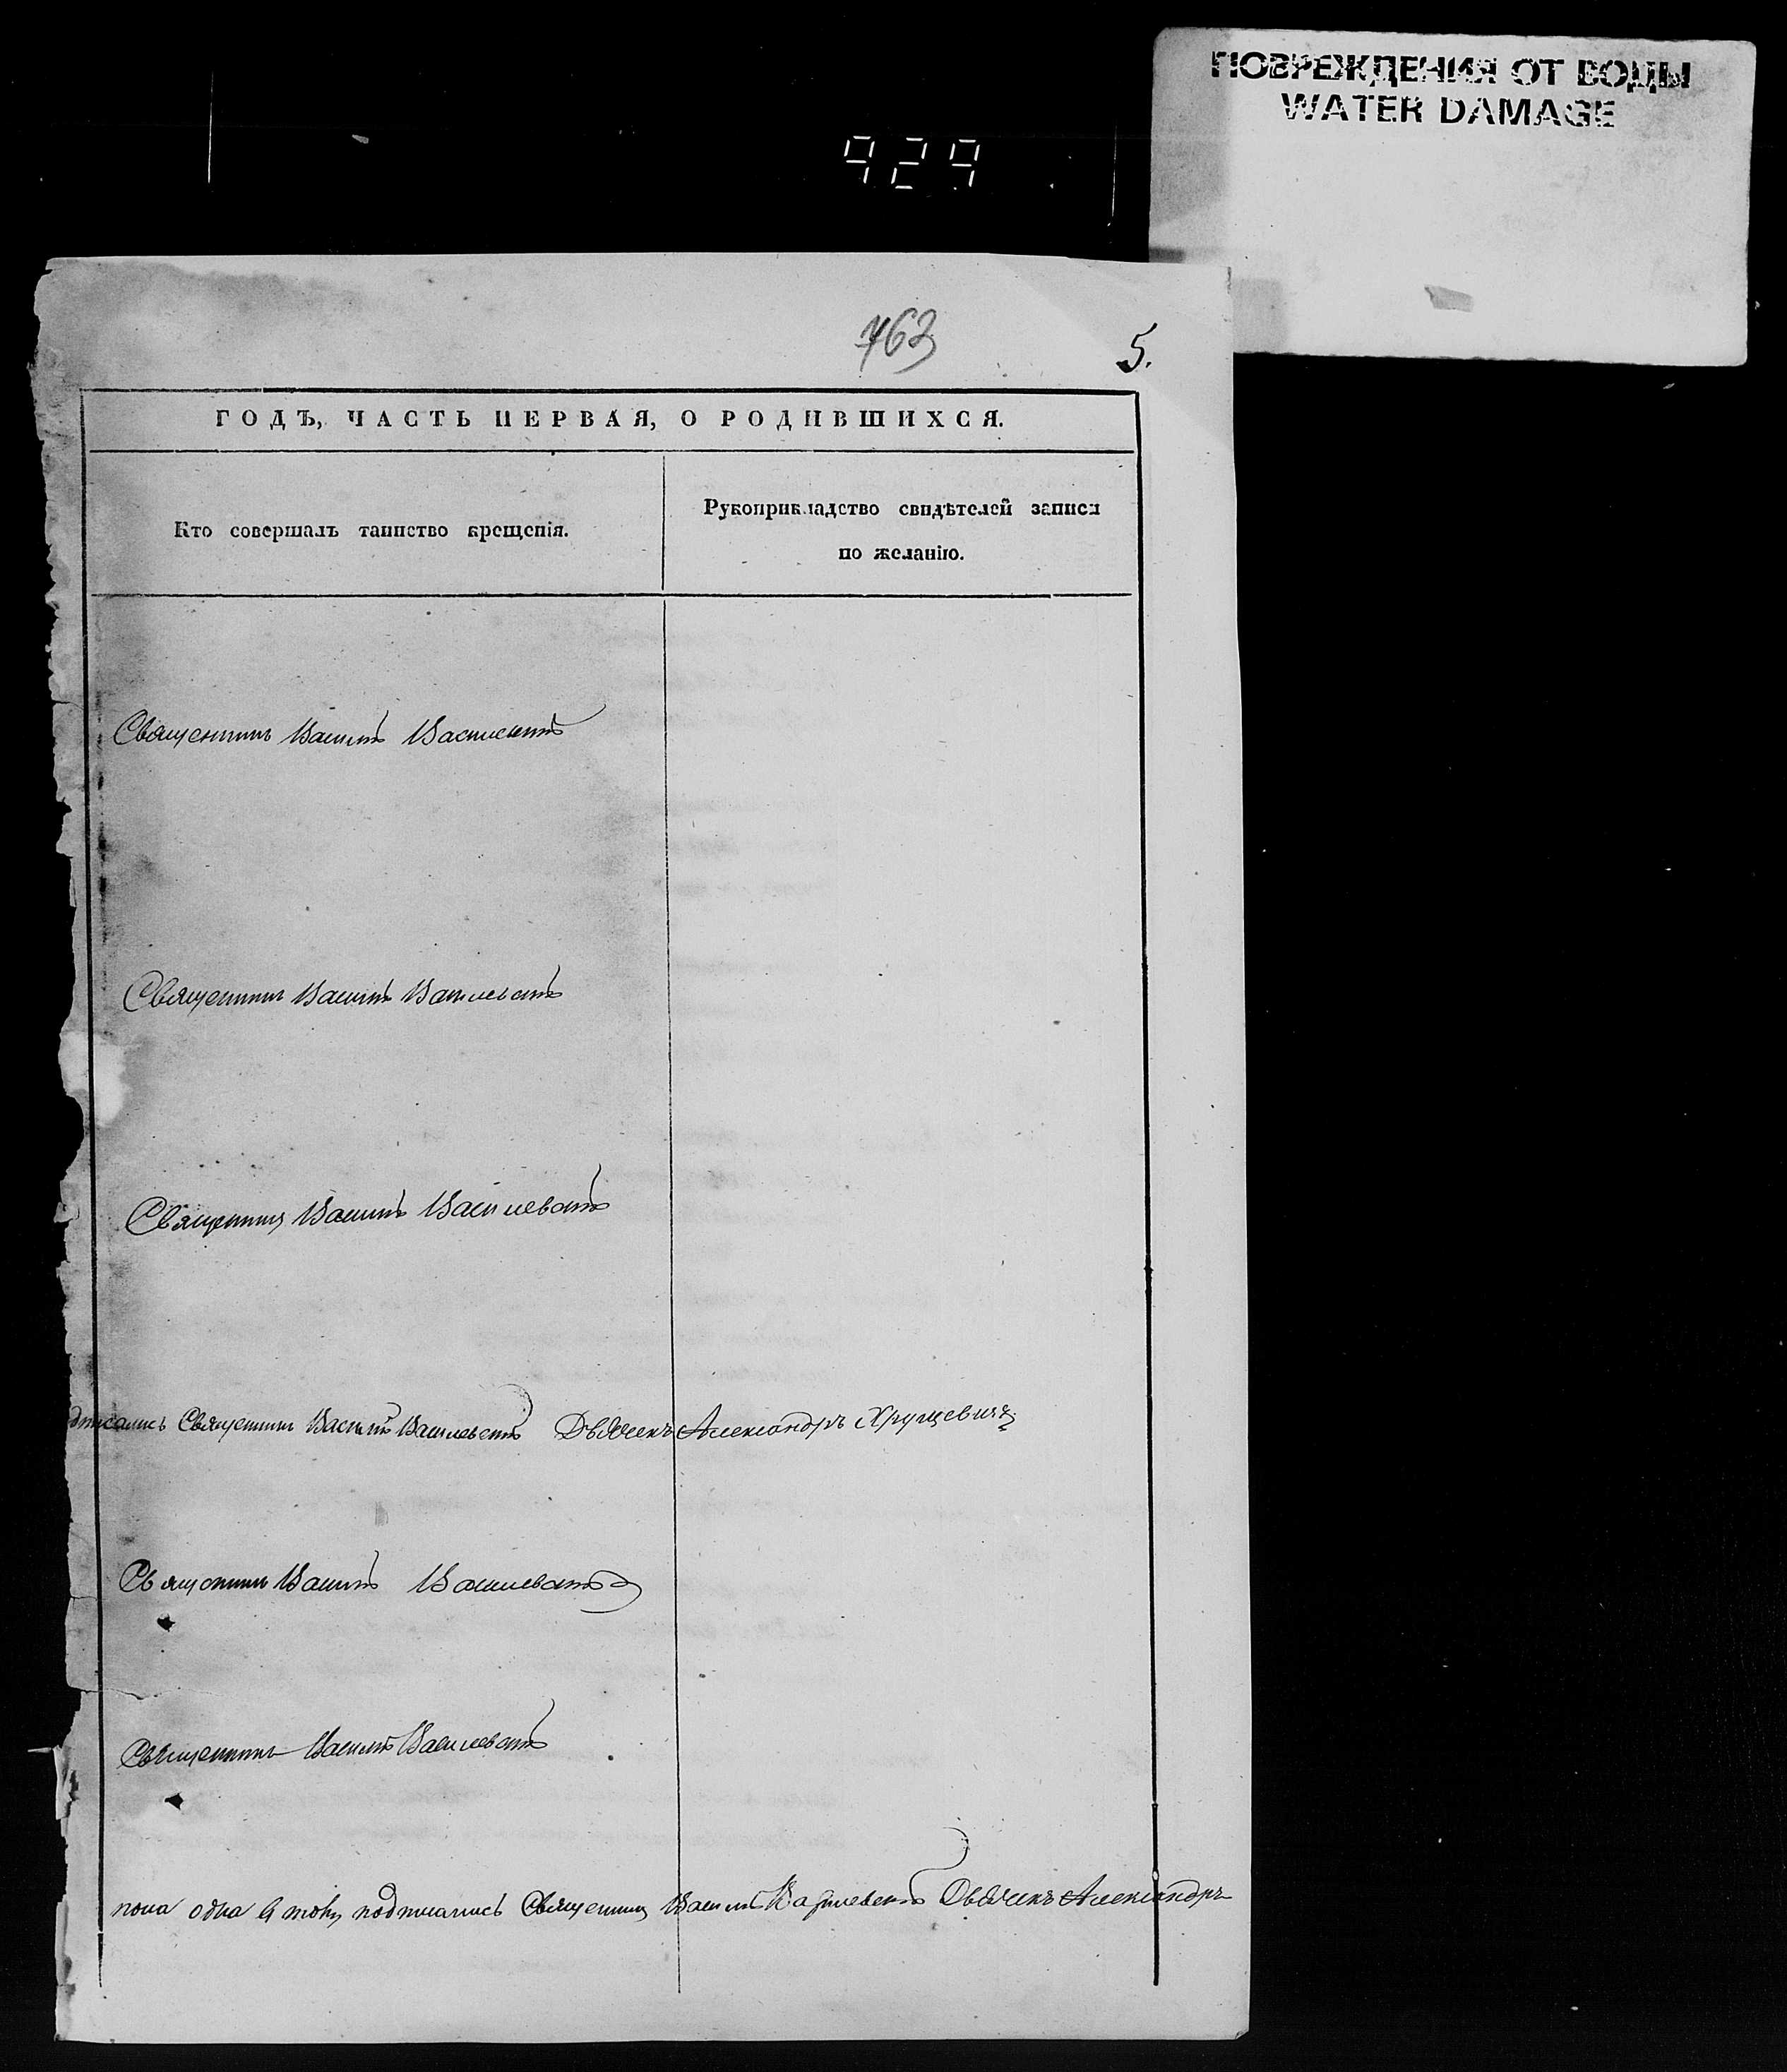 ПОВРЕЖДЕНИЯ ОТ ВОДЫ
WATER DAMAGE
929
763
5.
ГОДЪ, ЧАСТЬ ПЕРВАЯ, О РОДИВШИХСЯ.
Кто совершалъ таинство крещенія.
Рукоприкладство свидѣтелей записи
по желанію.
Священникъ Василій
Священникъ Василій
Священникъ Василій
дписались Священникъ Василій Дьячекъ Александръ Хруцевичъ
Священникъ Василій
Священникъ Василій
пола одна подписались Священникъ Василій Дьячекъ Александръ